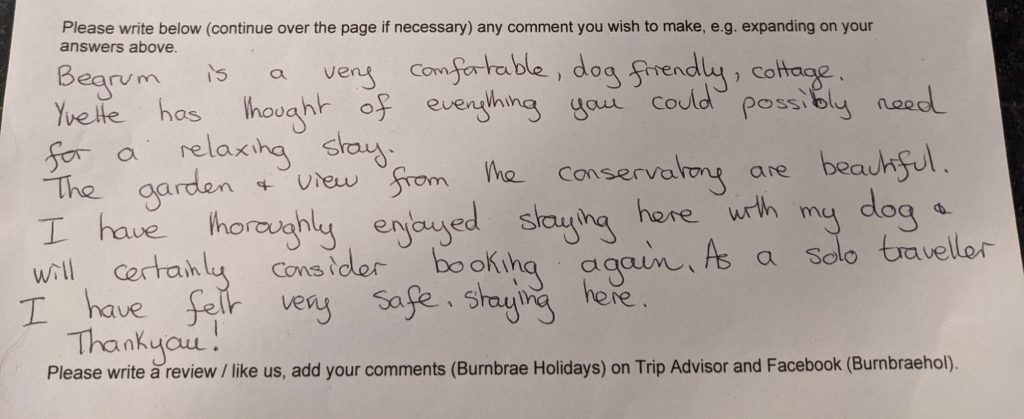 Please write below (continue over the page if necessary) any comment you wish to make, e.g. expanding on your
answers above.
Begrum is a very comfortable, dog friendly, cottage.
Yvette has thought of everything you could possibly need
for a relaxing stay.
The garden & view from the conservatory are beautiful.
I have thoroughly enjoyed staying here with my dog &
will certainly consider booking again. As a solo traveller
I have felt very safe. staying here.
Thankyou!
Please write a review / like us, add your comments (Burnbrae Holidays) on Trip Advisor and Facebook (Burnbraehol).